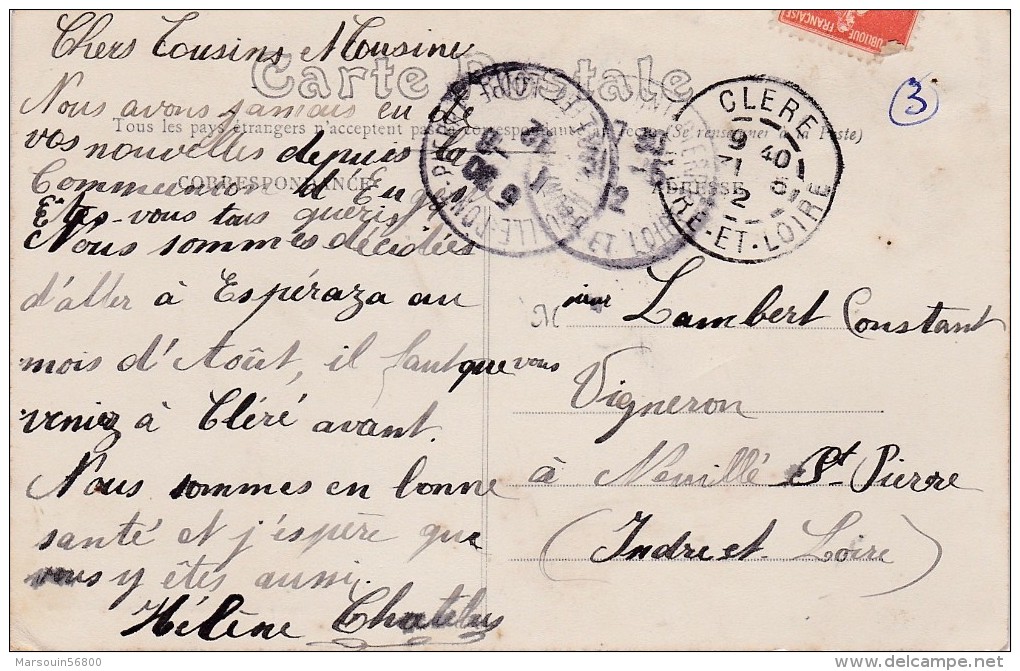 Chers Cousins et Cousine
Carte Postale
Nous avons jamais eu de
Tous les pays étrangers n'acceptent pas la correspondance au recto (Se renseigner à la Poste)
vos nouvelles depuis la
CORRESPONDANCE
Communion d'Eug
Etes-vous tous guéris
Nous sommes décidées
d'aller à Espéraza au
mois d'Août, il faut que vous
veniez à Cléré avant.
Nous sommes en bonne
santé et j'espère que
vous y êtes aussi.
Hélène Chatelus
UBLIQUE FRANÇAISE
3
CLERE
9 40
INDRE-ET-LOIRE
ADRESSE
Lambert Constant
Vigneron
à Neuillé St Pierre
(Indre et Loire)
Marsouin56800
delcampe.net